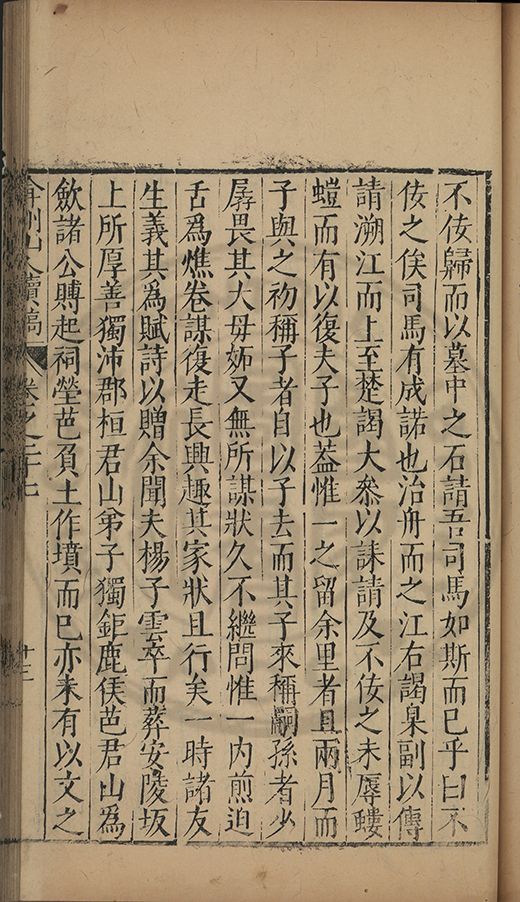 不佞歸而以墓中之石請吾司馬如斯而已乎曰不
佞之俟司馬有成諾也治舟而之江右謁臬副以傳
請溯江而上至楚謁大叅以誄請及不佞之未辱螻
螘而有以復夫子也葢惟一之留余里者且兩月而
子與之初稱子者自以子去而其子來稱嗣孫者少
孱畏其大母妬又無所謀狀久不繼問惟一內煎迫
舌爲燋卷謀復走長興趣其家狀且行矣一時諸友
生義其爲賦詩以贈余聞夫楊子雲卒而葬安陵坂
上所厚善獨沛郡桓君山弟子獨鉅鹿侯芭君山爲
歛諸公賻起祠塋芭負土作墳而已亦未有以文之
弇州山人續稿 卷之三十七 十三